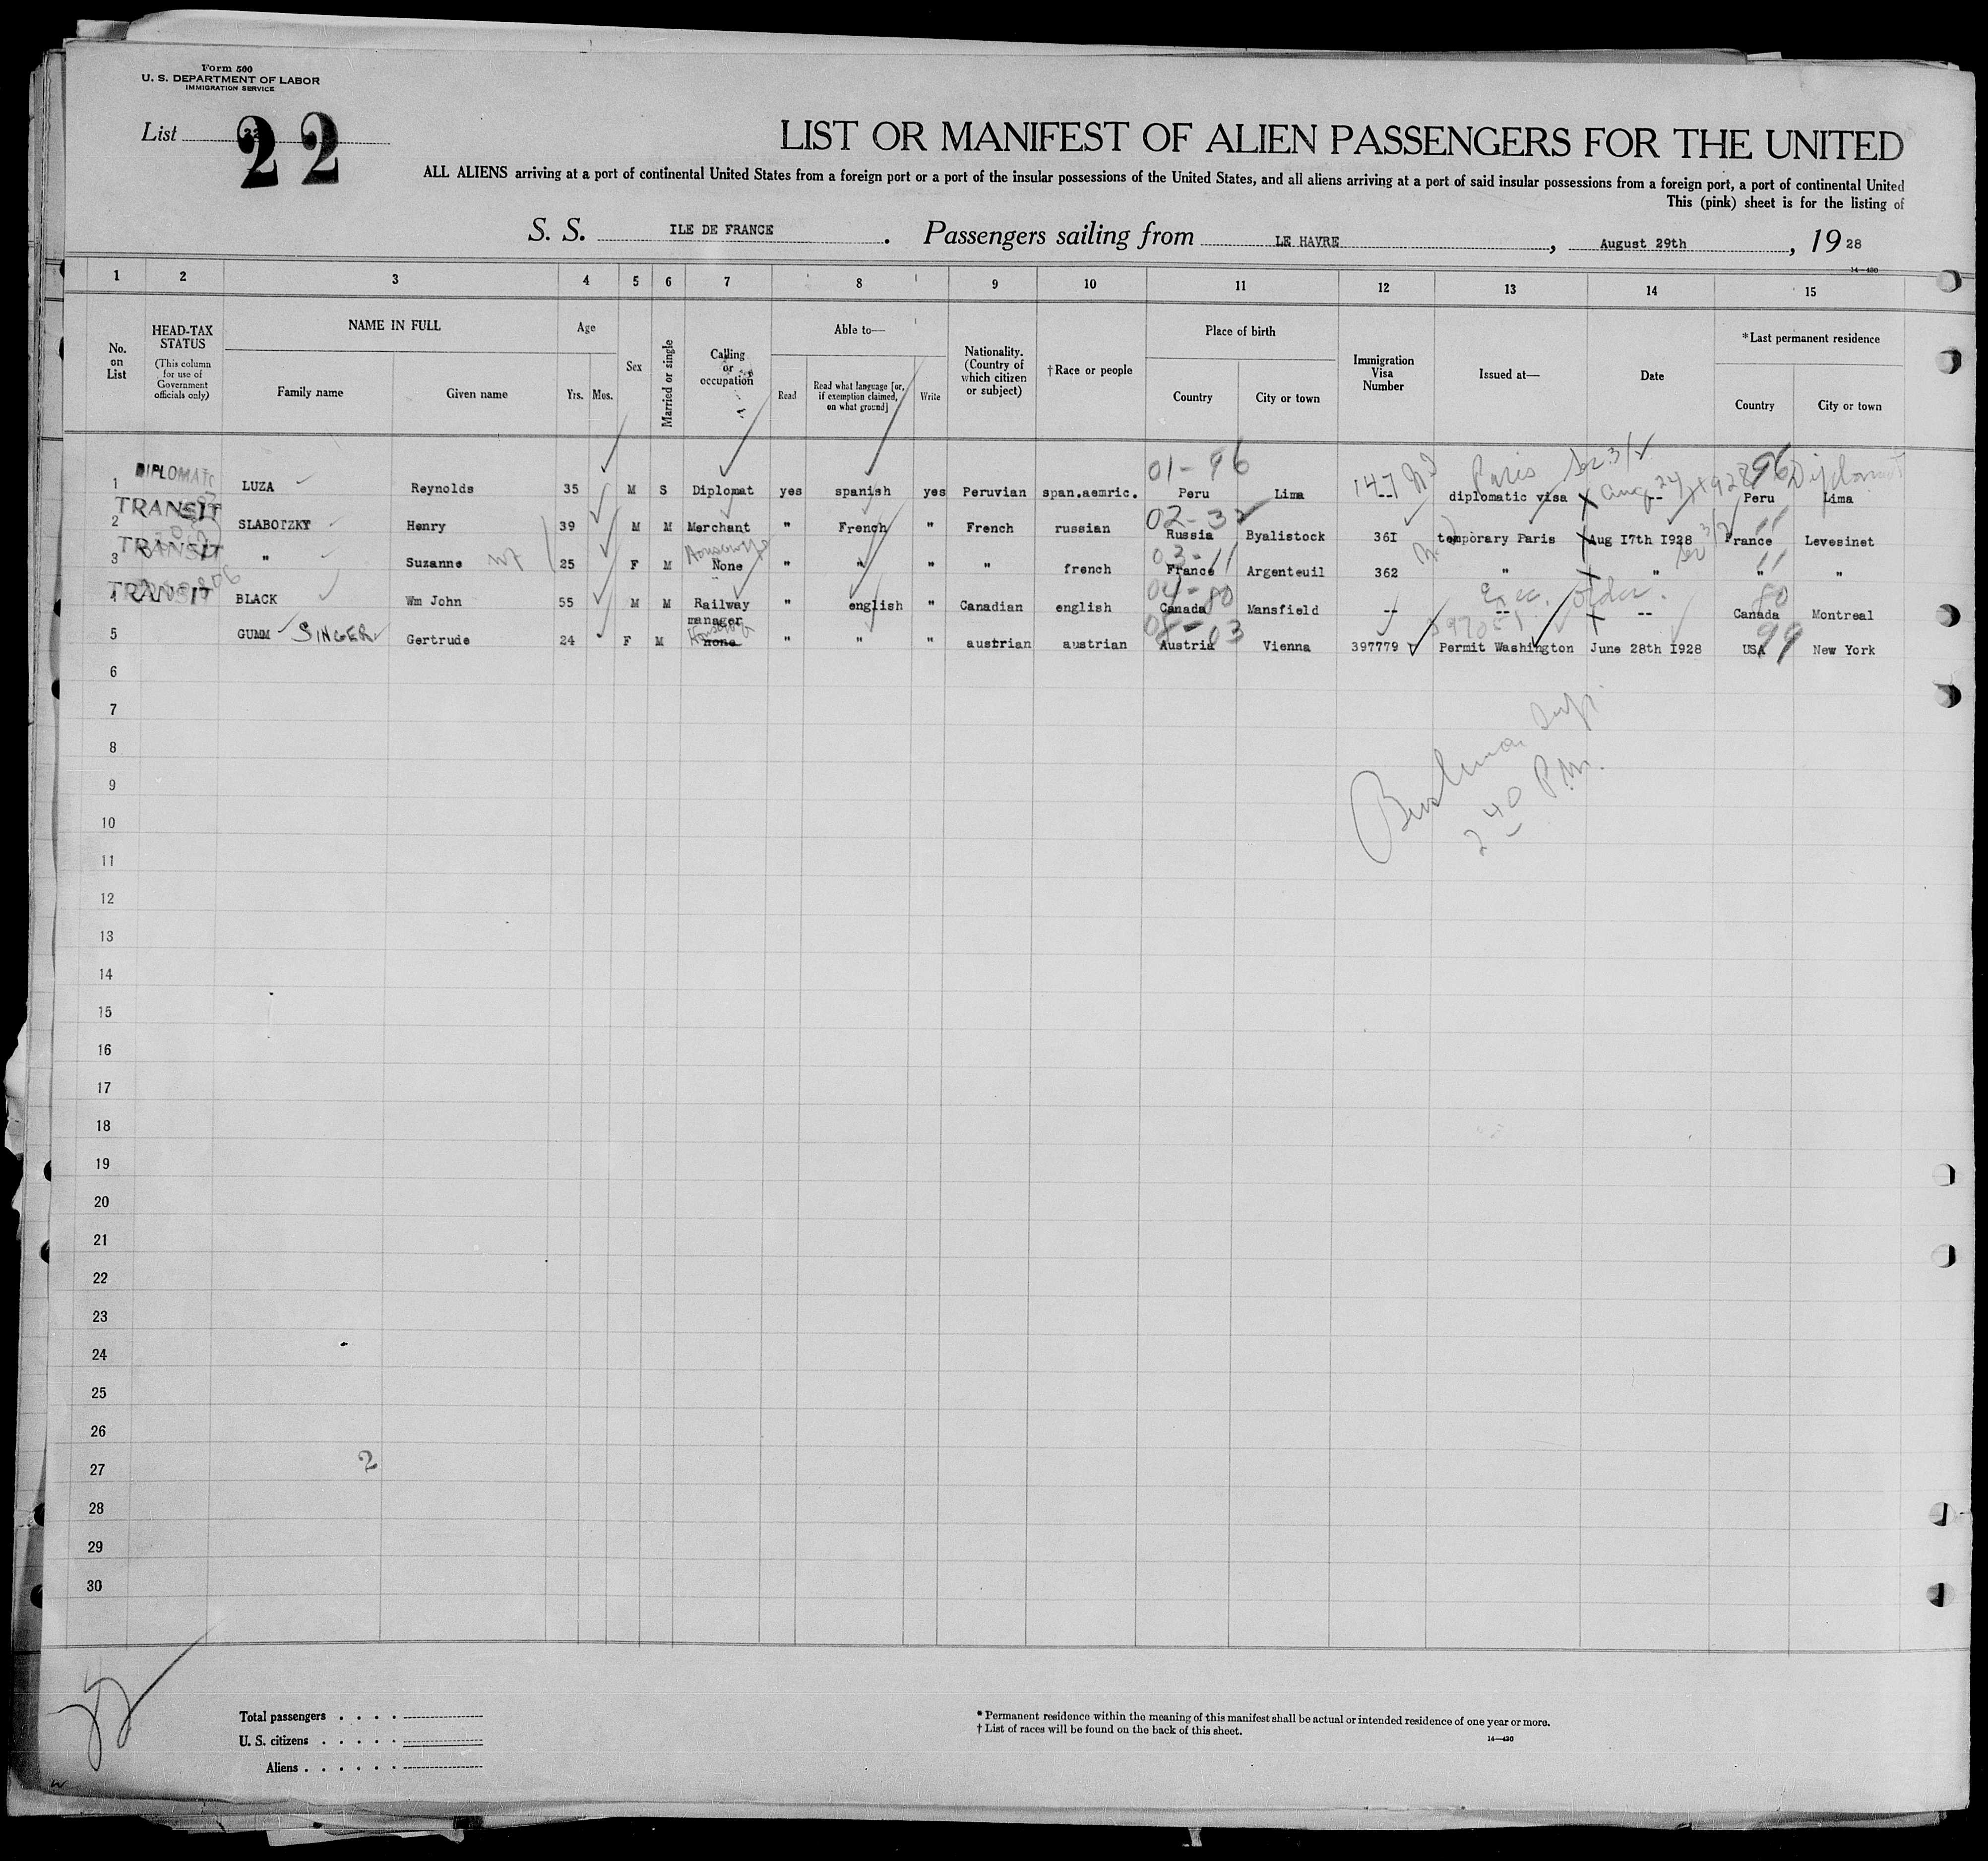 Form 500
U. S. DEPARTMENT OF LABOR
IMMIGRATION SERVICE
List 22
22
LIST OR MANIFEST OF ALIEN PASSENGERS FOR THE UNITED
ALL ALIENS arriving at a port of continental United States from a foreign port or a port of the insular possessions of the United States, and all aliens arriving at a port of said insular possessions from a foreign port, a port of continental United
This (pink) sheet is for the listing of
S. S. ILE DE FRANCE. Passengers sailing from LE HAVRE, August 29th, 1928
14—430
1 2 3 4 5 6 7 8 9 10 11 12 13 14 15
No. on List
HEAD-TAX STATUS (This column for use of Government officials only)
NAME IN FULL
Family name
Given name
Age
Yrs. Mos.
Sex
Married or single
Calling or occupation
Able to—
Read
Read what language [or, if exemption claimed, on what ground]
Write
Nationality. (Country of which citizen or subject)
†Race or people
Place of birth
Country
City or town
Immigration Visa Number
Issued at—
Date
*Last permanent residence
Country
City or town
01-96 147 Paris Aug 24/1928 96 Diplomat
DIPLOMATC
1 LUZA Reynolds 35 M S Diplomat yes spanish yes Peruvian span.aemric. Peru Lima -- diplomatic visa -- Peru Lima
TRANSIT
02-32 11
2 SLABOTZKY Henry 39 M M Merchant " French " French russian Russia Byalistock 36I temporary Paris Aug I7th I928 France Levesinet
TRANSIT
Housewife 03-11 11
3 " Suzanne wf 25 F M None " " " " french France Argenteuil 362 " " " "
TRANSIT
04-80 Exec. Order. 80
4 BLACK Wm John 55 M M Railway manager " english " Canadian english Canada Mansfield -- -- -- Canada Montreal
Housewife 05-03 99
5 GUMM SINGER Gertrude 24 F M none " " " austrian austrian Austria Vienna 397779 Permit Washington June 28th I928 USA New York
6
7
8
9
2 40 P.M.
10
11
12
13
14
15
16
17
18
19
20
21
22
23
24
25
26
27 2
28
29
30
Total passengers . . . .
U. S. citizens . . . . .
Aliens . . . . . .
* Permanent residence within the meaning of this manifest shall be actual or intended residence of one year or more.
† List of races will be found on the back of this sheet.
14—430